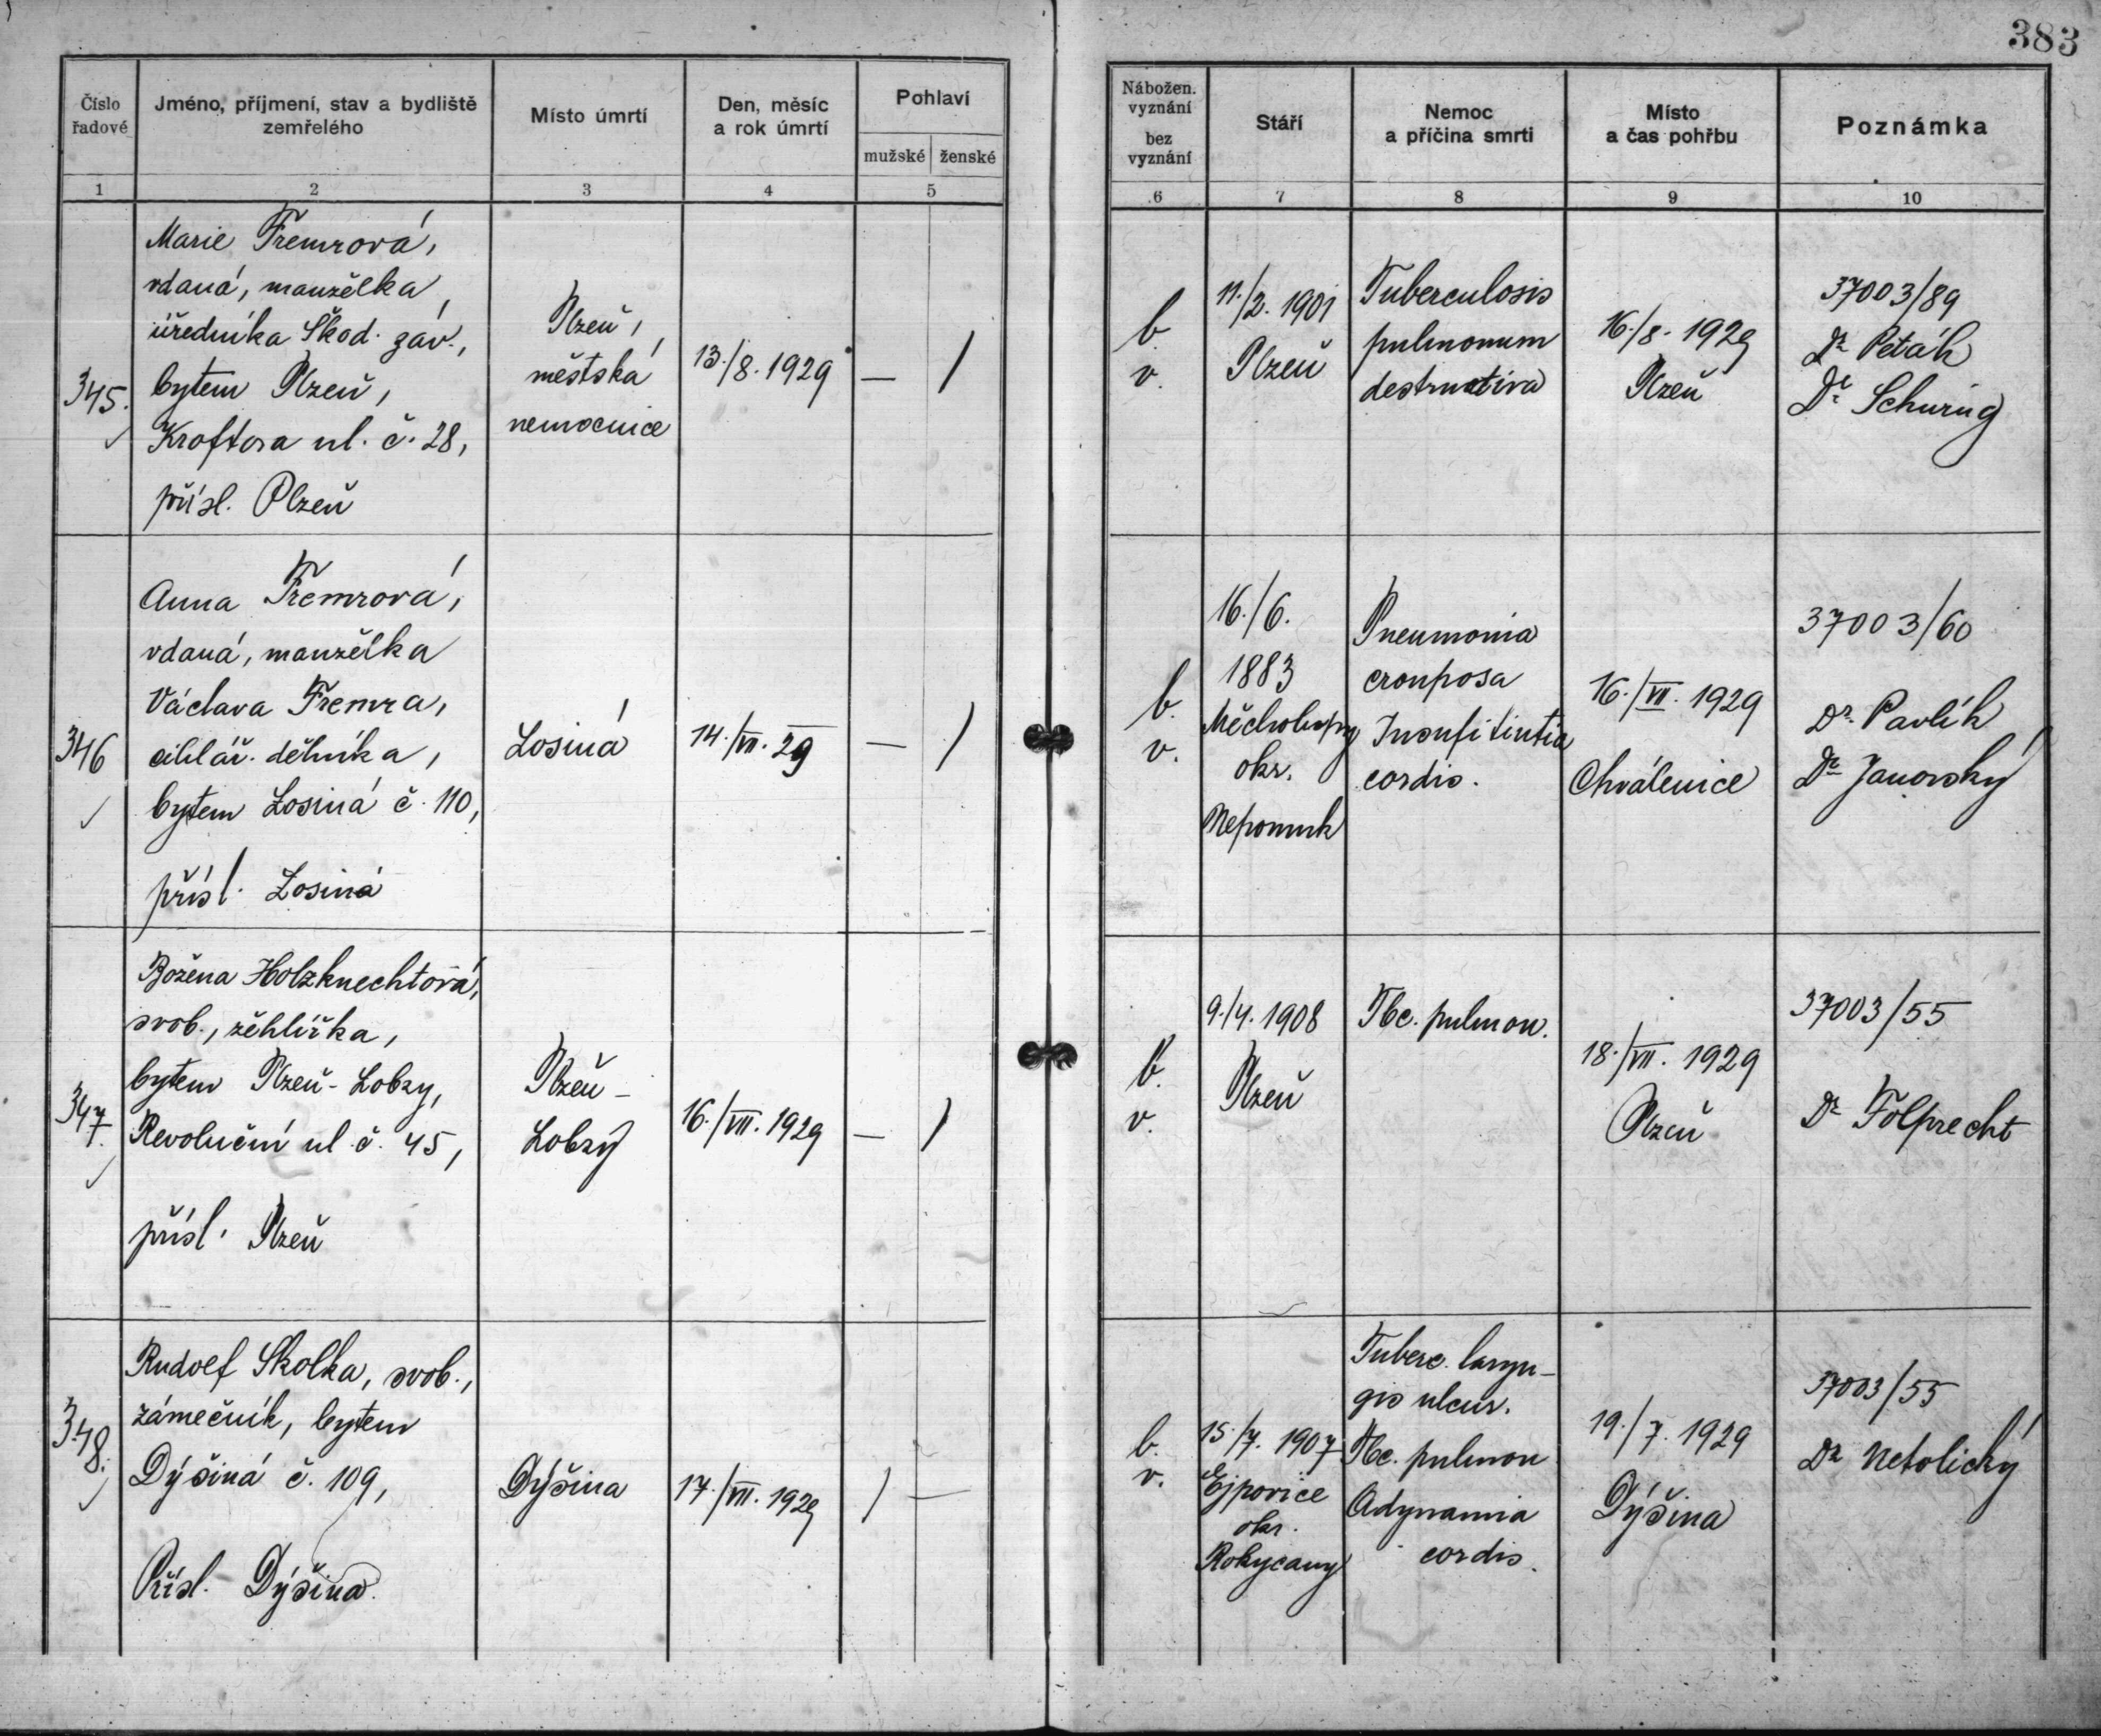 383
Číslo
řadové
Jméno, příjmení, stav a bydliště
zemřelého
Místo úmrtí
Den, měsíc
a rok úmrtí
Pohlaví
mužské ženské
1 2 3 4 5
Nábožen.
vyznání
bez
vyznání
Stáří
Nemoc
a příčina smrti
Místo
a čas pohřbu
Poznámka
6 7 8 9 10
345.
Marie Fremrová,
vdaná, manželka
úředníka Škod. záv.,
bytem Plzeň,
Kroftova ul. č. 28,
přísl. Plzeň
Plzeň,
městská
nemocnice
13./8. 1929
— /
b.
v.
11./2. 1901
Plzeň
Tuberculosis
pulmonum
destructiva
16./8. 1929
Plzeň
37003/89
Dr Peták
Dr Schuring
346
Anna Fremrová,
vdaná, manželka
Václava Fremra,
cihlář. dělníka,
bytem Losiná č. 110,
přísl. Losiná
Losiná
14./VII. 29
— /
b.
v.
16./6.
1883
Měcholupy
okr.
Nepomuk
Pneumonia
crouposa
Insufitintia
cordis.
16./VII. 1929
Chválenice
37003/60
Dr. Pavlík
Dr Janovský
347.
Božena Holzknechtová,
svob., žehlířka,
bytem Plzeň-Lobzy,
Revoluční ul. č. 45,
přísl. Plzeň
Plzeň-
Lobzy
16./VII. 1929
— /
b.
v.
9./4. 1908
Plzeň
Tbc. pulmon.
18./VII. 1929
Plzeň
37003/55
Dr Folprecht
348.
Rudolf Skolka, svob.,
zámečník, bytem
Dýšiná č. 109,
Přísl. Dýšina.
Dýšina
17./VII. 1929
/ —
b.
v.
15./7. 1907
Ejpovice
okr.
Rokycany
Tuberc. laryn-
gis ulcer.
Tbc. pulmon
Adynamia
cordis.
19./7. 1929
Dýšina
37003/55
Dr Netolický